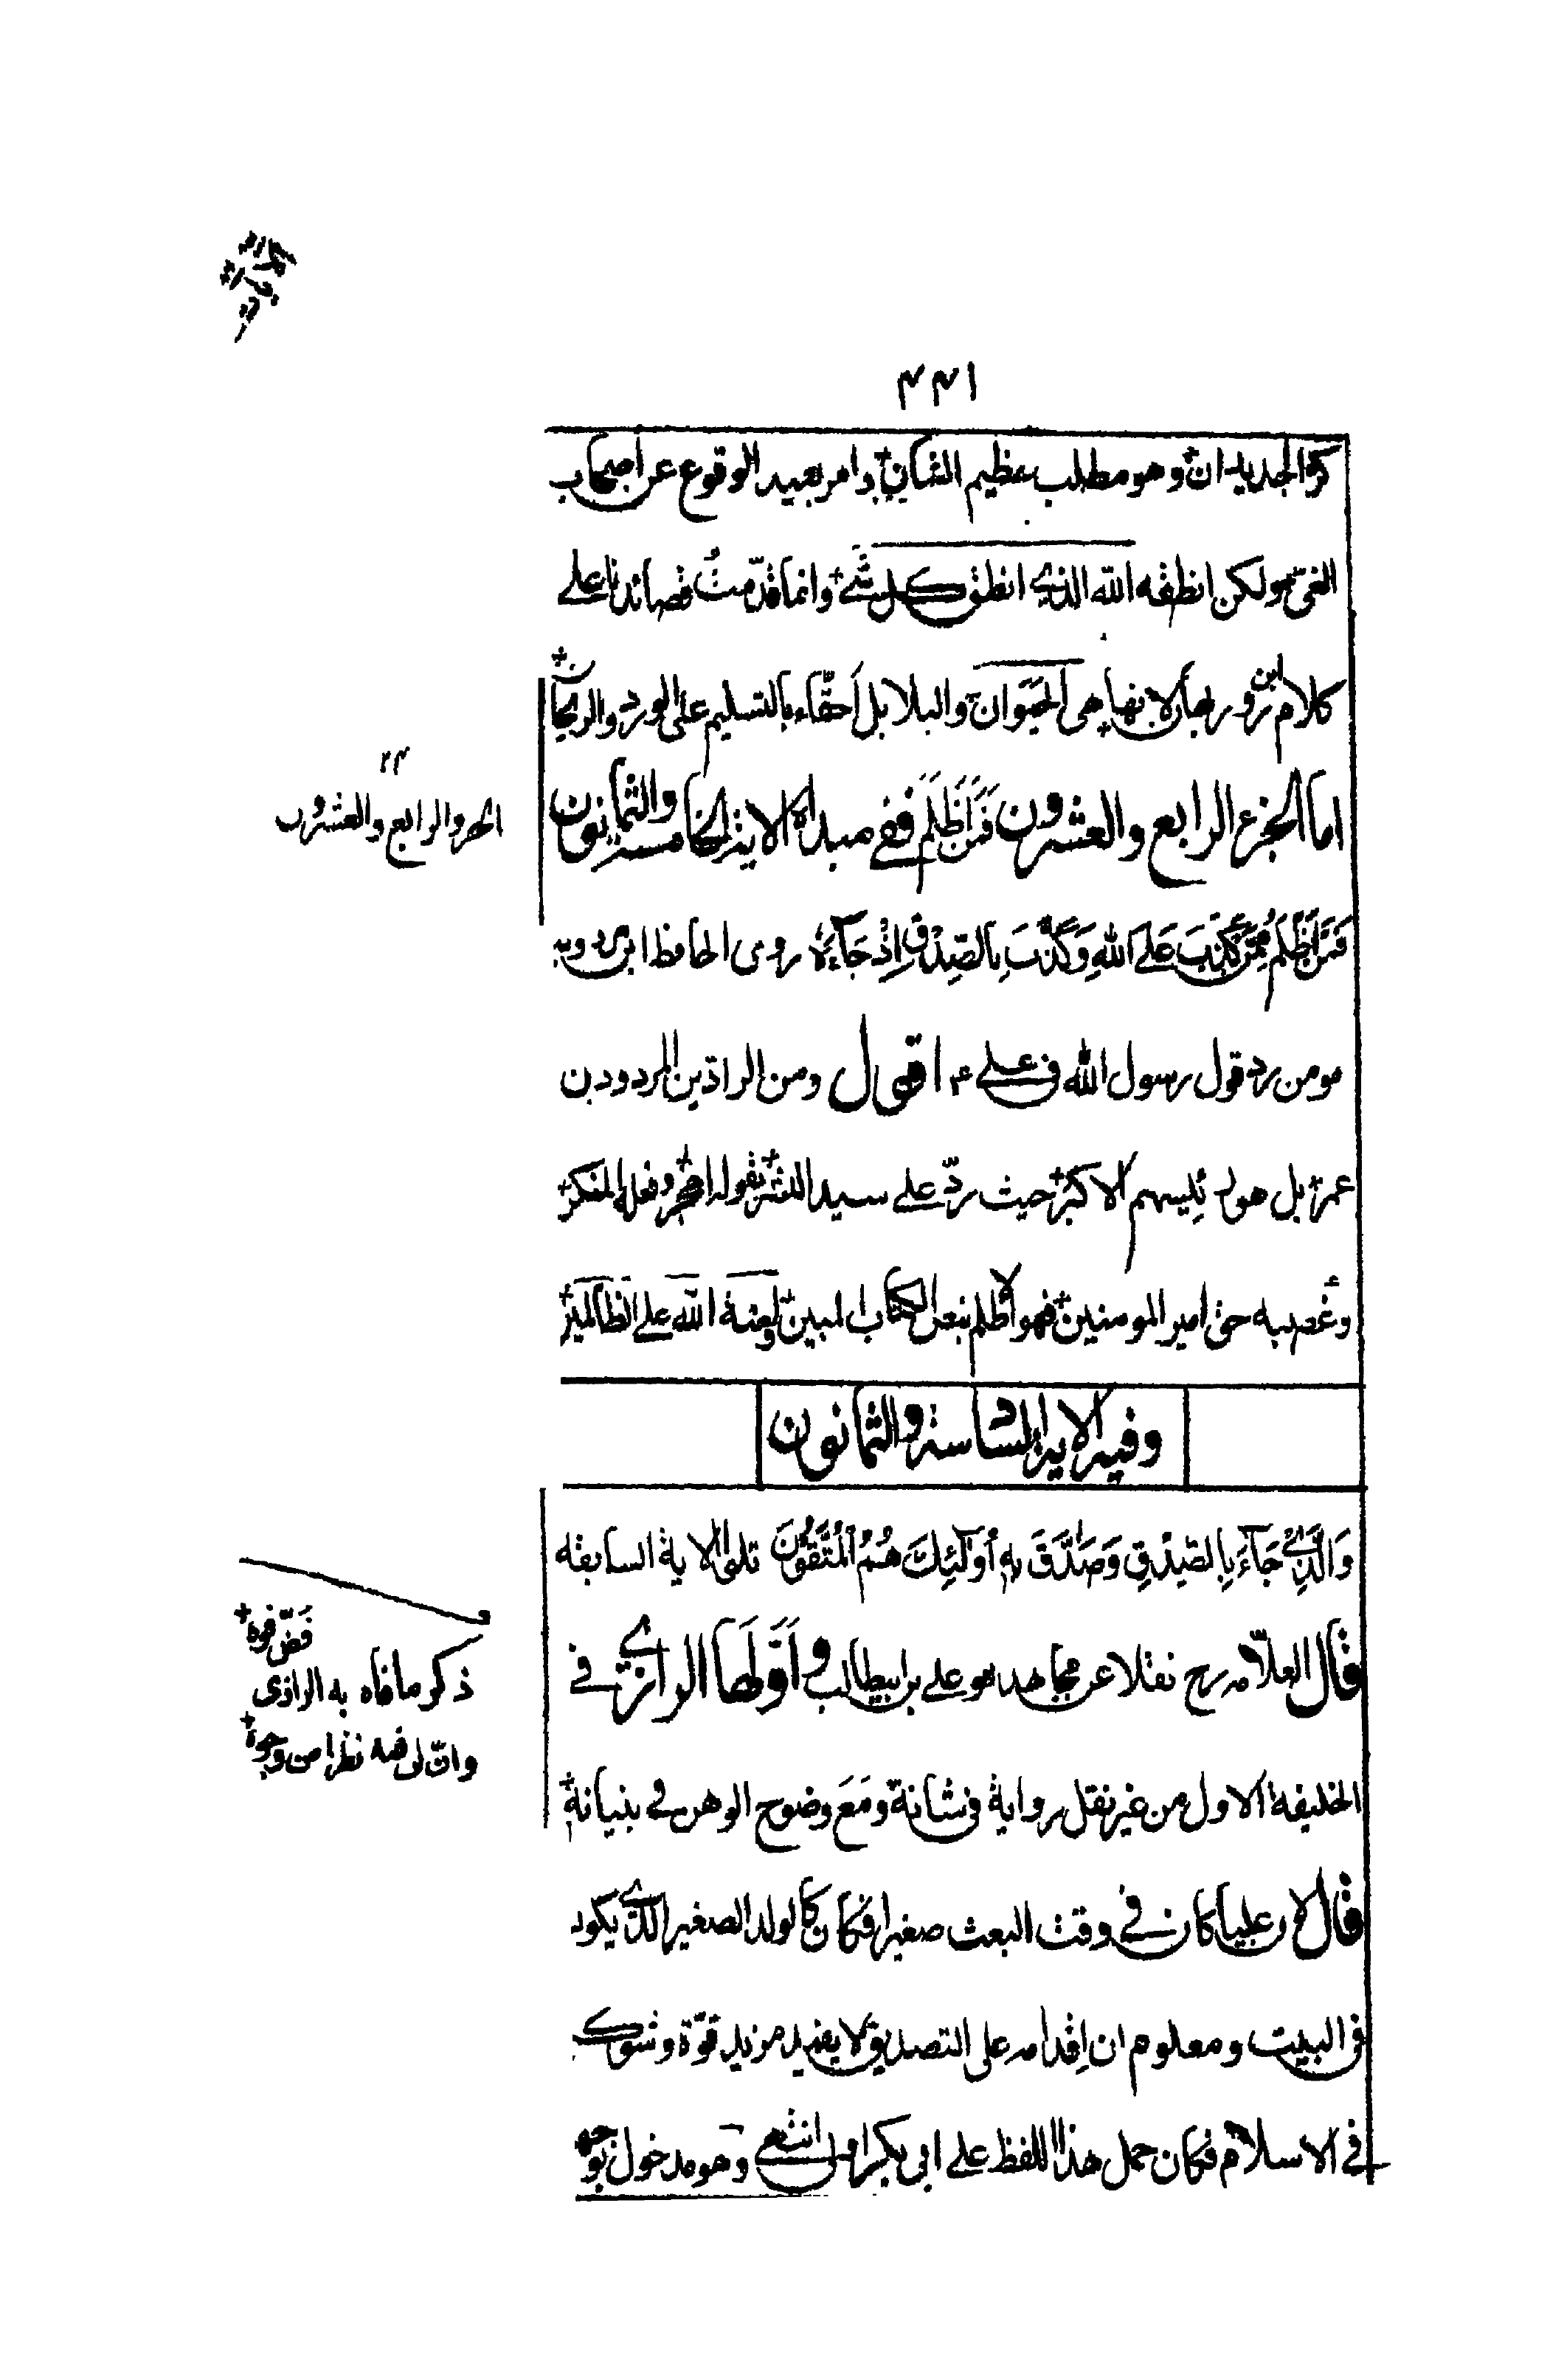 ۴۴۱
كر الجديدان وهو مطلب عظيم الشان وامر بعيد الوقوع عن اصحاب
الغي ولكن انطقه الله الذي انطق كل شئ وانما قدمت قصائدنا على
كلام ابن روزبهان لانها هي الحيوان والبلابل احقاء بالتسليم على الورد والريحان
اما الجزء الرابع والعشرون فَمَنْ أَظْلَمُ ففي مبداه الاية الخامسة والثمانون
فَمَنْ أَظْلَمُ مِمَّنْ كَذَبَ عَلَى اللهِ وَكَذَّبَ بِالصِّدْقِ إِذْ جَاءَهُ روى الحافظ ابن مردويه
هو من رد قول رسول الله في علي ع اقول ومن الرادين المردودين
عمر بل هو رئيسهم الاكبر حيث ردّ على سيد البشر بقوله اهجر وفعله المنكر
وغصبه حق امير المومنين فهو الاظلم بنص الكتاب المبين ولعنة الله على الظالمين
وفيه الاية السادسة والثمانون
وَالَّذِي جَاءَ بِالصِّدْقِ وَصَدَّقَ بِهِ أُولَئِكَ هُمُ الْمُتَّقُونَ تلى الاية السابقة
قال العلامه رح نقلا عن مجاهد هو علي بن ابيطالب وَاَوَّلَهَا الرازي في
الخليفة الاول من غير نقل رواية في شانه ومَعَ وضوح الوهن في بنيانه
قال لان عليا كان في وقت البعث صغيرا فكان كالولد الصغير الذي يكون
في البيت ومعلوم ان اقدامه على التصديق لا يفيد مزيد قوّة وشوكة
في الاسلام فكان حمل هذا اللفظ على ابي بكر اولى انتهى وهو مدخول بوجوه
۲۴
الجزو الرابع والعشرون
فَضّ فوه
ذكر ما فاه به الرازى
وانّ لى فيه نظرا من وجوه